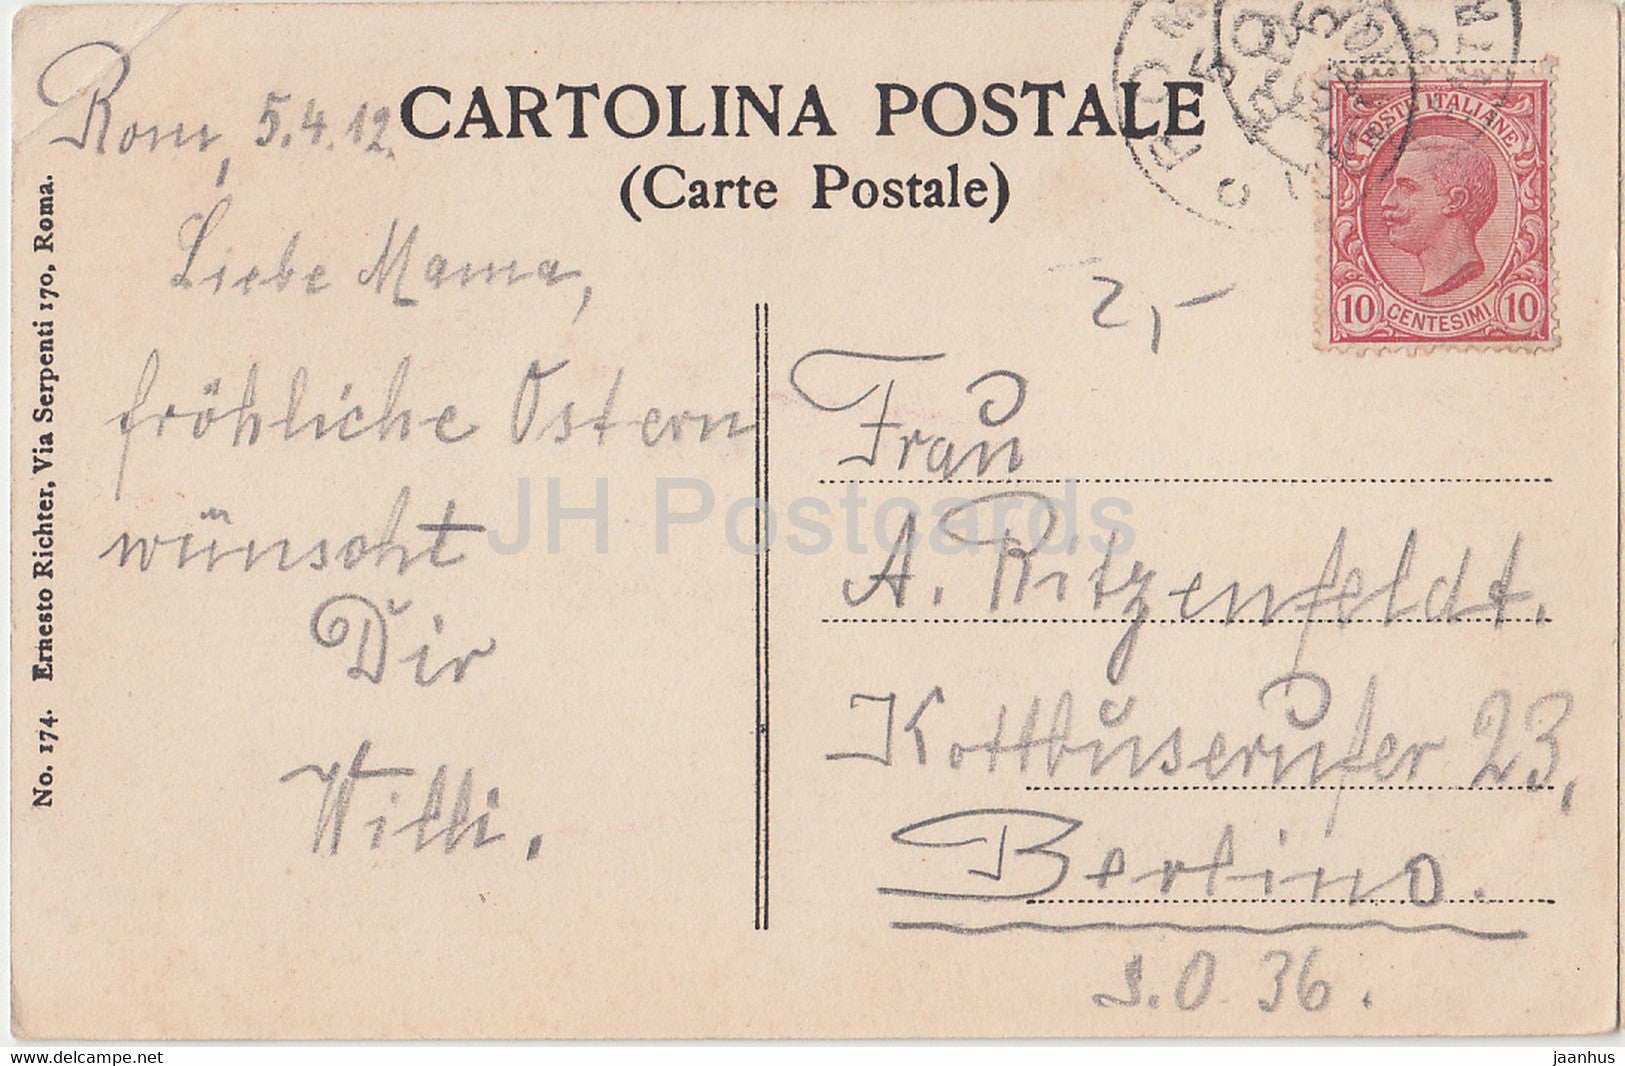 CARTOLINA POSTALE
(Carte Postale)
Rom, 5.4.12.
Liebe Mama,
fröhliche Ostern
wünscht
Dir
Willi.
2,-
POSTE ITALIANE
10 CENTESIMI 10
Frau
A. Ritzenfeldt.
Kottbuserufer 23,
Berlino.
S.O. 36.
No. 174. Ernesto Richter, Via Serpenti 170, Roma.
JH Postcards
www.delcampe.net
jaanhus